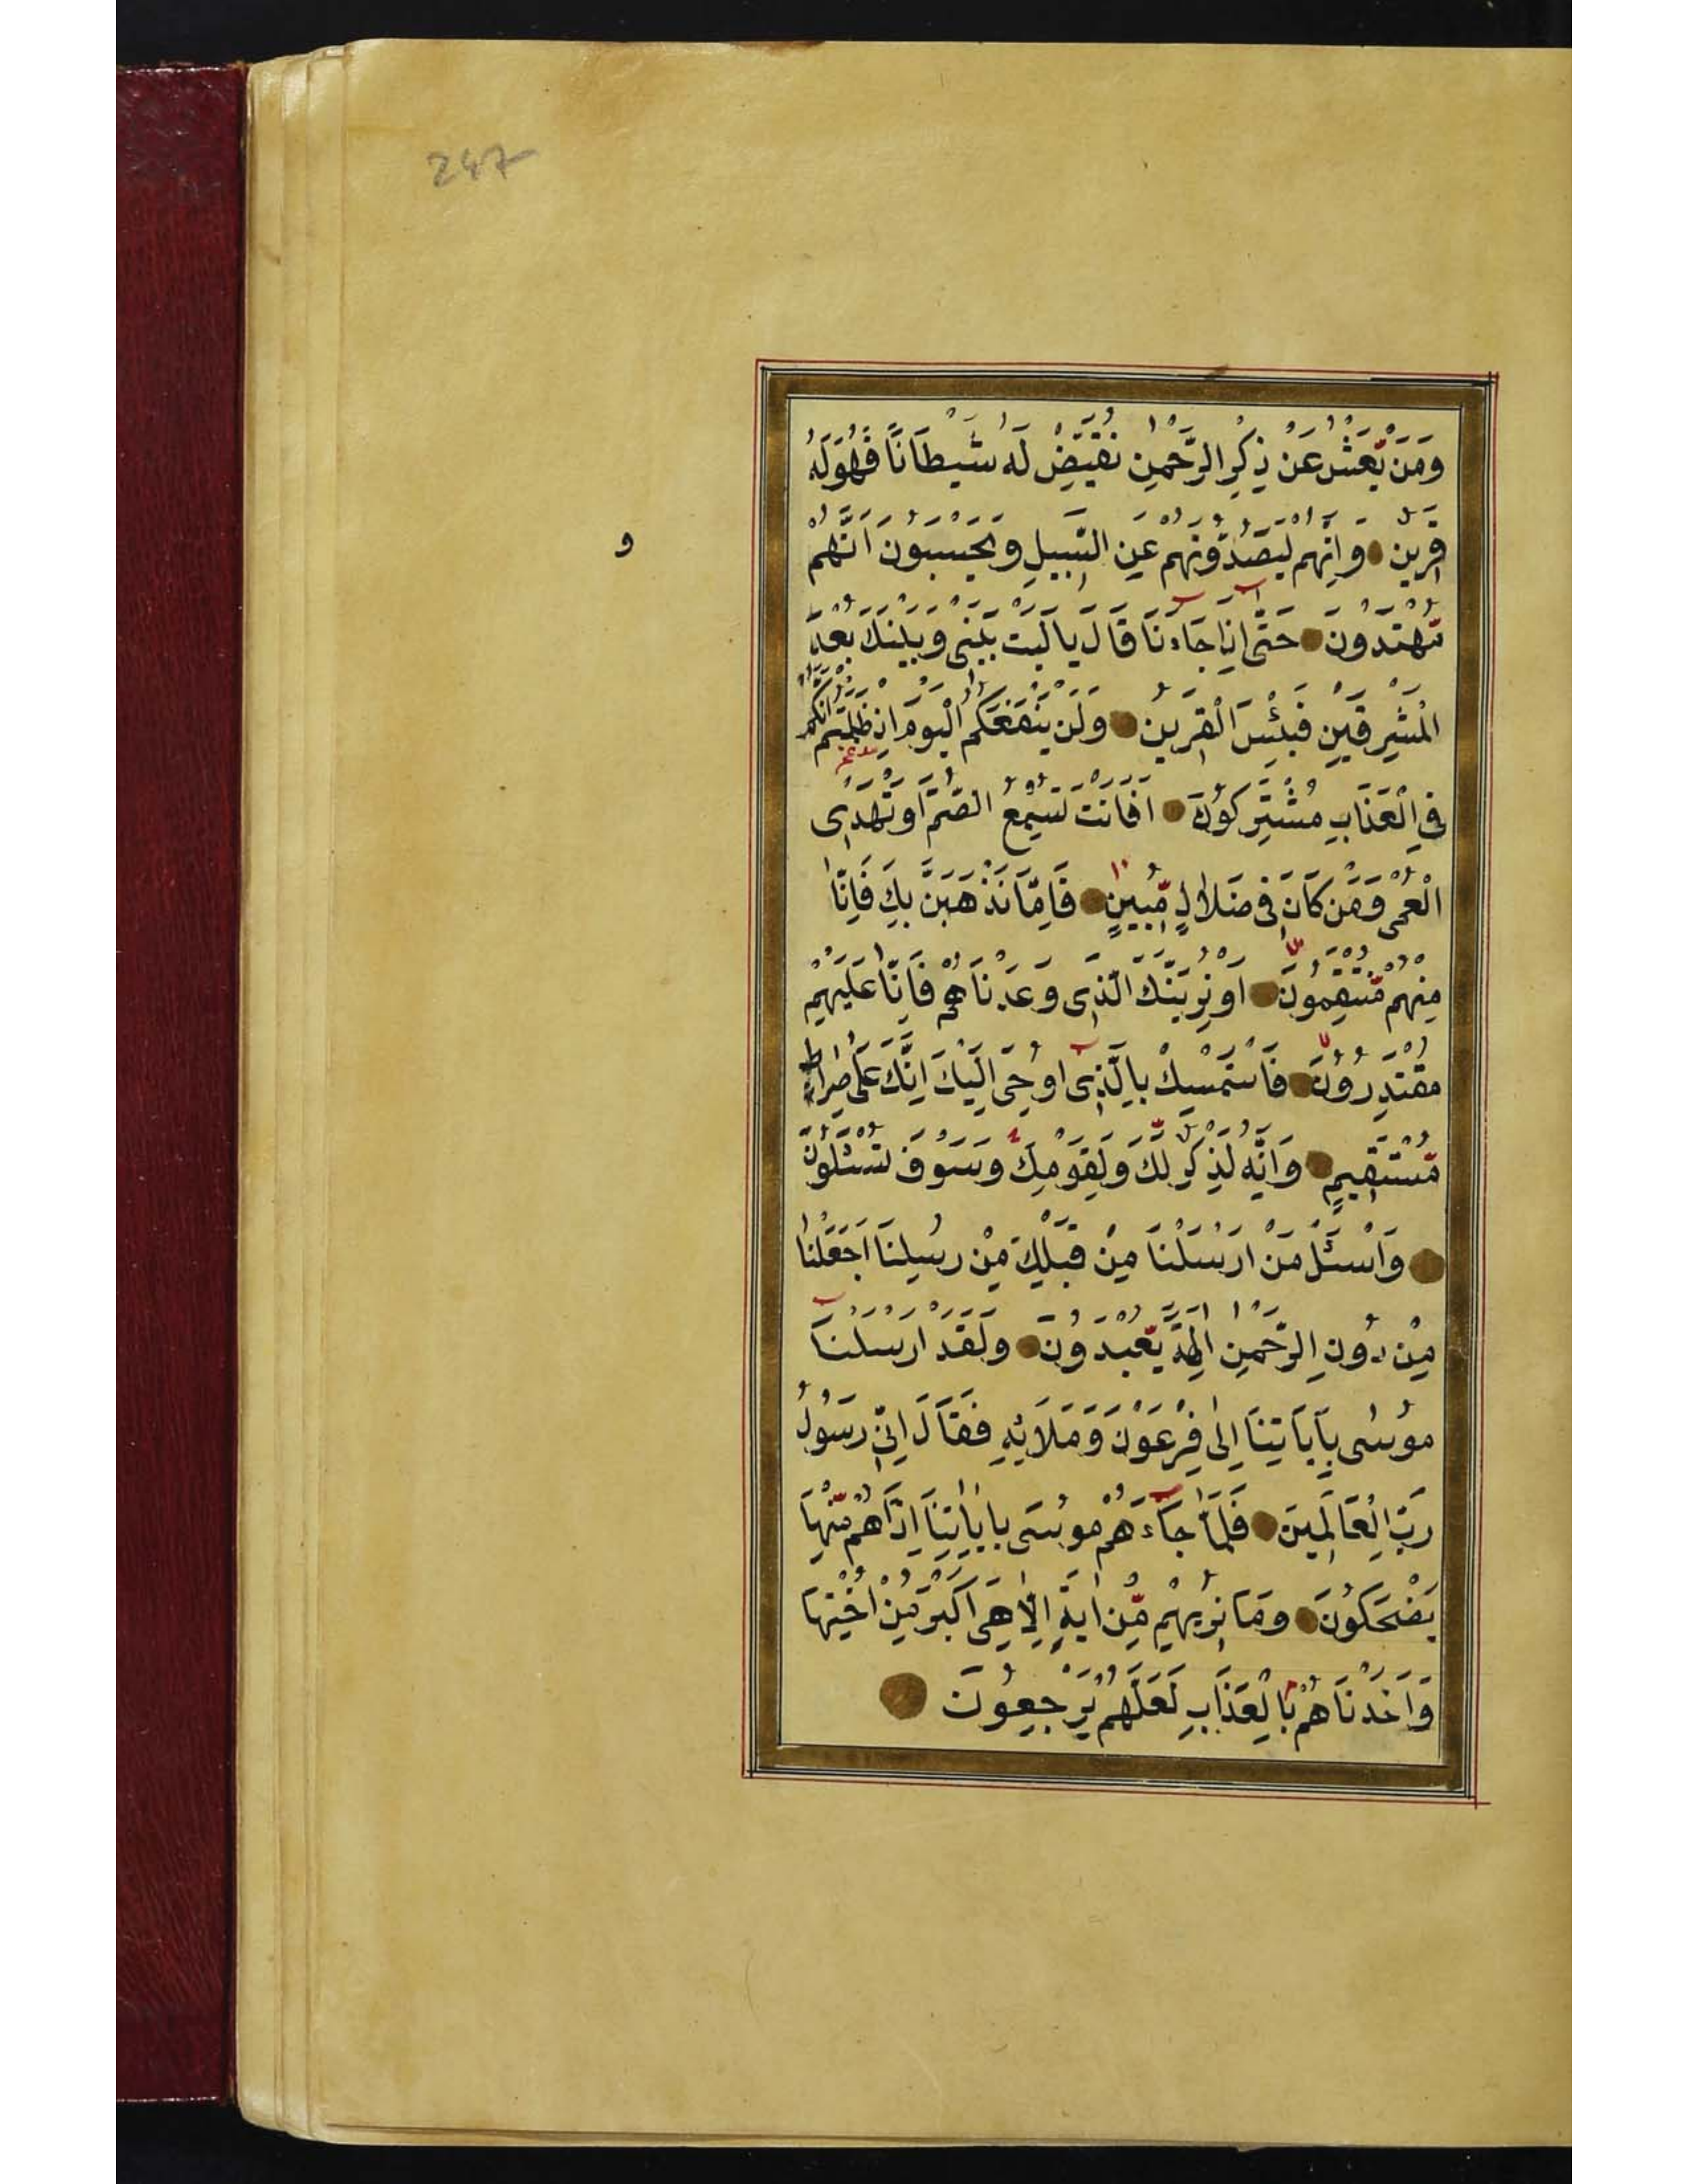 247
وَمَنْ يَّعْشُ عَنْ ذِكْرِ الرَّحْمٰنِ نُقَيِّضْ لَهُ شَيْطَانًا فَهُوَ لَهُ
قَرِينٌ وَاِنَّهُمْ لَيَصُدُّونَهُمْ عَنِ السَّبِيلِ وَيَحْسَبُونَ اَنَّهُمْ
و
مُّهْتَدُونَ حَتّٰٓى اِذَا جَآءَنَا قَالَ يَا لَيْتَ بَيْنِى وَبَيْنَكَ بُعْدَ
الْمَشْرِقَيْنِ فَبِئْسَ الْقَرِينُ وَلَنْ يَنْفَعَكُمُ الْيَوْمَ اِذْ ظَلَمْتُمْ اَنَّكُمْ
فِى الْعَذَابِ مُشْتَرِكُونَ اَفَاَنْتَ تُسْمِعُ الصُّمَّ اَوْ تَهْدِى
الْعُمْىَ وَمَنْ كَانَ فِى ضَلَالٍ مُّبِينٍ فَاِمَّا نَذْهَبَنَّ بِكَ فَاِنَّا
مِنْهُمْ مُّنْتَقِمُونَ اَوْ نُرِيَنَّكَ الَّذِى وَعَدْنَاهُمْ فَاِنَّا عَلَيْهِمْ
مُقْتَدِرُونَ فَاسْتَمْسِكْ بِالَّذِٓى اُوحِىَ اِلَيْكَ اِنَّكَ عَلٰى صِرَاطٍ
مُّسْتَقِيمٍ وَاِنَّهُ لَذِكْرٌ لَّكَ وَلِقَوْمِكَ وَسَوْفَ تُسْئَلُونَ
وَاسْئَلْ مَنْ اَرْسَلْنَا مِنْ قَبْلِكَ مِنْ رُسُلِنَا اَجَعَلْنَا
مِنْ دُونِ الرَّحْمٰنِ اٰلِهَةً يُّعْبَدُونَ وَلَقَدْ اَرْسَلْنَا
مُوسٰى بِاٰيَاتِنَا اِلٰى فِرْعَوْنَ وَمَلَائِهِ فَقَالَ اِنِّى رَسُولُ
رَبِّ الْعَالَمِينَ فَلَمَّا جَآءَهُمْ مُوسٰى بِاٰيَاتِنَا اِذَا هُمْ مِّنْهَا
يَضْحَكُونَ وَمَا نُرِيهِمْ مِّنْ اٰيَةٍ اِلَّا هِىَ اَكْبَرُ مِنْ اُخْتِهَا
وَاَخَذْنَاهُمْ بِالْعَذَابِ لَعَلَّهُمْ يَرْجِعُونَ